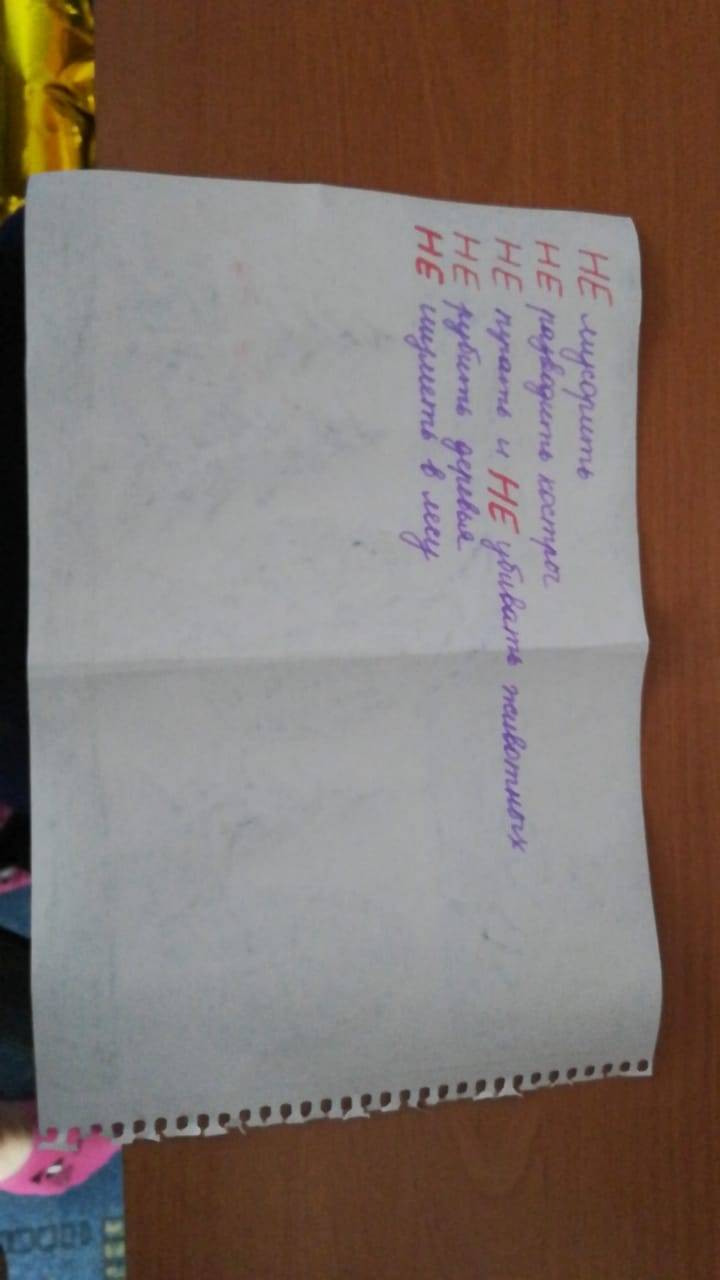 НЕ мусорить
НЕ разводить костры
НЕ пугать и НЕ убивать животных
НЕ рубить деревья
НЕ шуметь в лесу